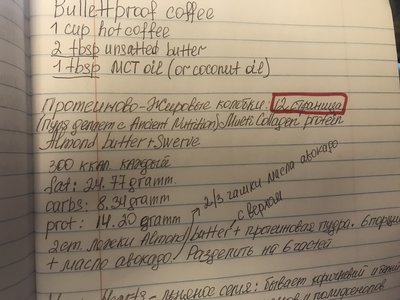 Bulletproof coffee
1 cup hot coffee
2 tbsp unsalted butter
1 tbsp MCT oil (or coconut oil)
Протеиново-Жировые колобки. 12 страница
делает с Ancient Nutrition) Multi Collagen protein
Almond butter + Swerve
300 ккал. каждый
fat: 24.77 gramm.
carbs: 8.34 gramm
prot: 14.20 gramm
2/3 чашки масла авокадо
с верхом
2 ст. ложки Almond butter + протеиновая пудра. 6 порций
+ масло авокадо. Разделить на 6 частей
- льняное семя: бывает коричневый и